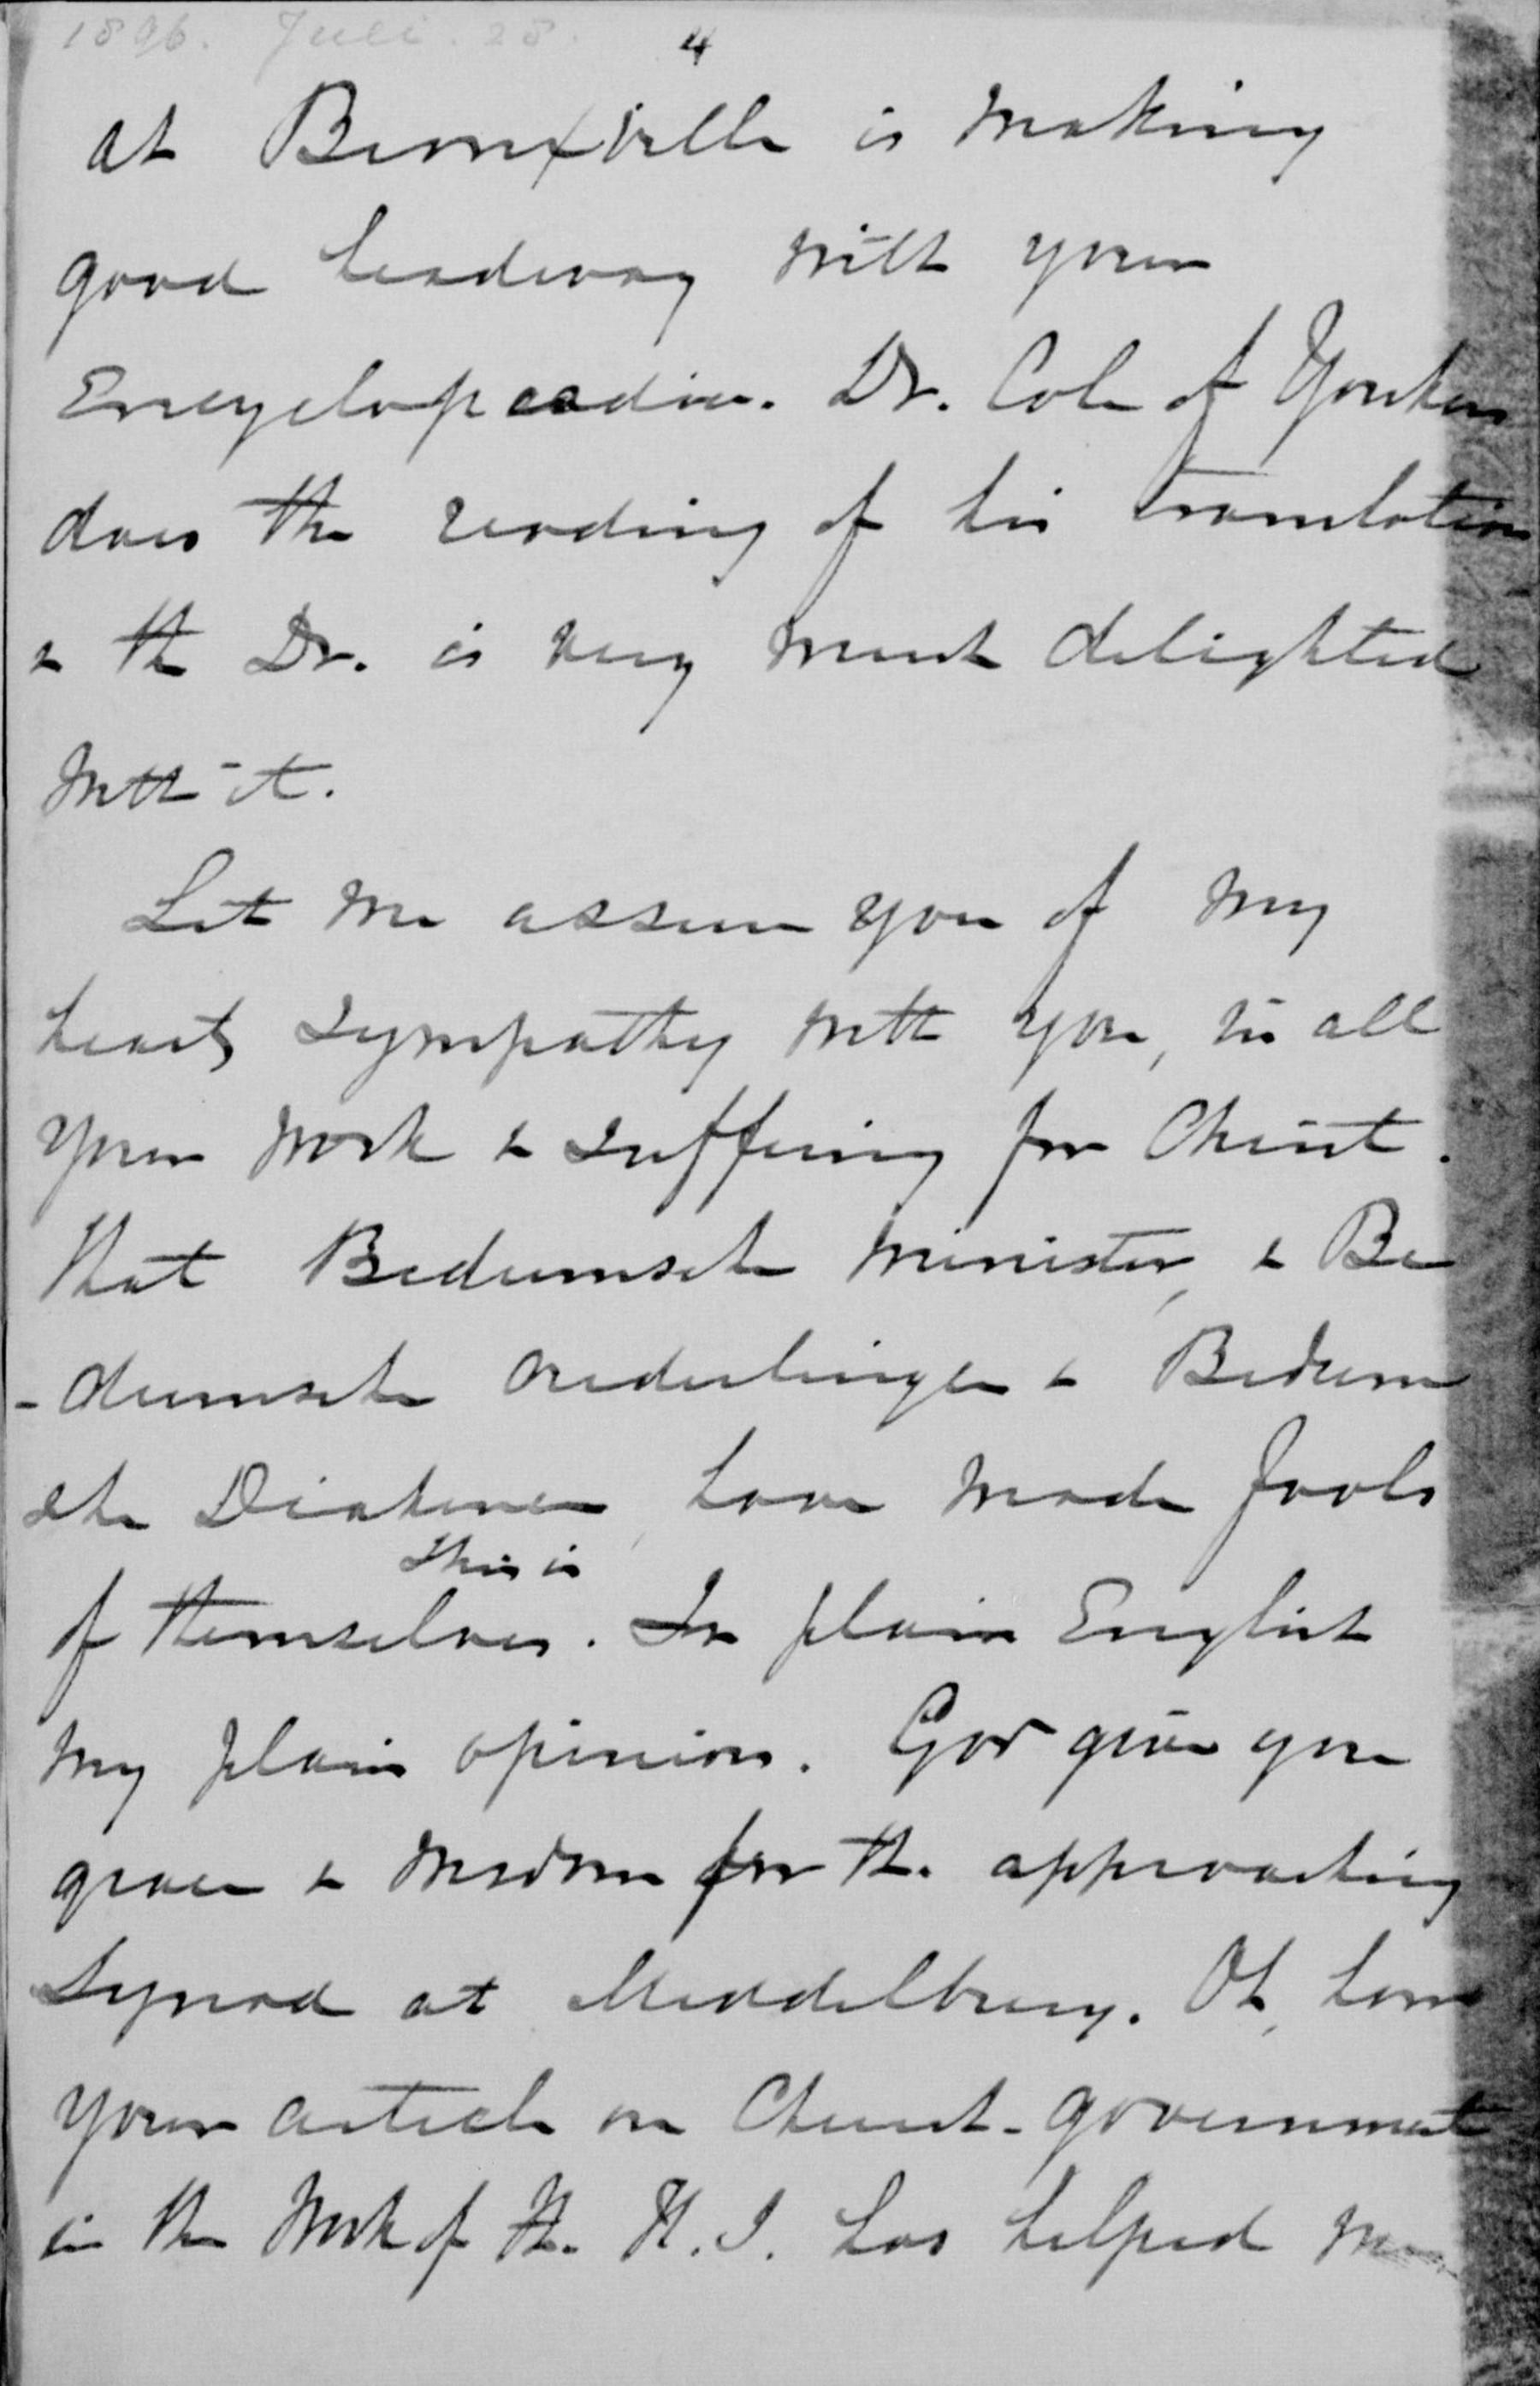 1896. Juli. 28.
4
at Bronxville is making
good headway with your
Encyclopaedia. Dr. Cole of Yonkers
does the reading of his translation
& the Dr. is very much delighted
with it.
Let me assure you of my
hearty sympathy with you, in all
your work & suffering for Christ.
That Bedumsche minister, & Be
-dumsche ouderlingen & Bedum
sche Diakenen, have made fools
This is
of themselves. In plain English
my plain opinion. God give you
grace & wisdom for the approaching
Synod at Middelburg. Oh, how
your article on Church-government
in the Work of the H. S. has helped me